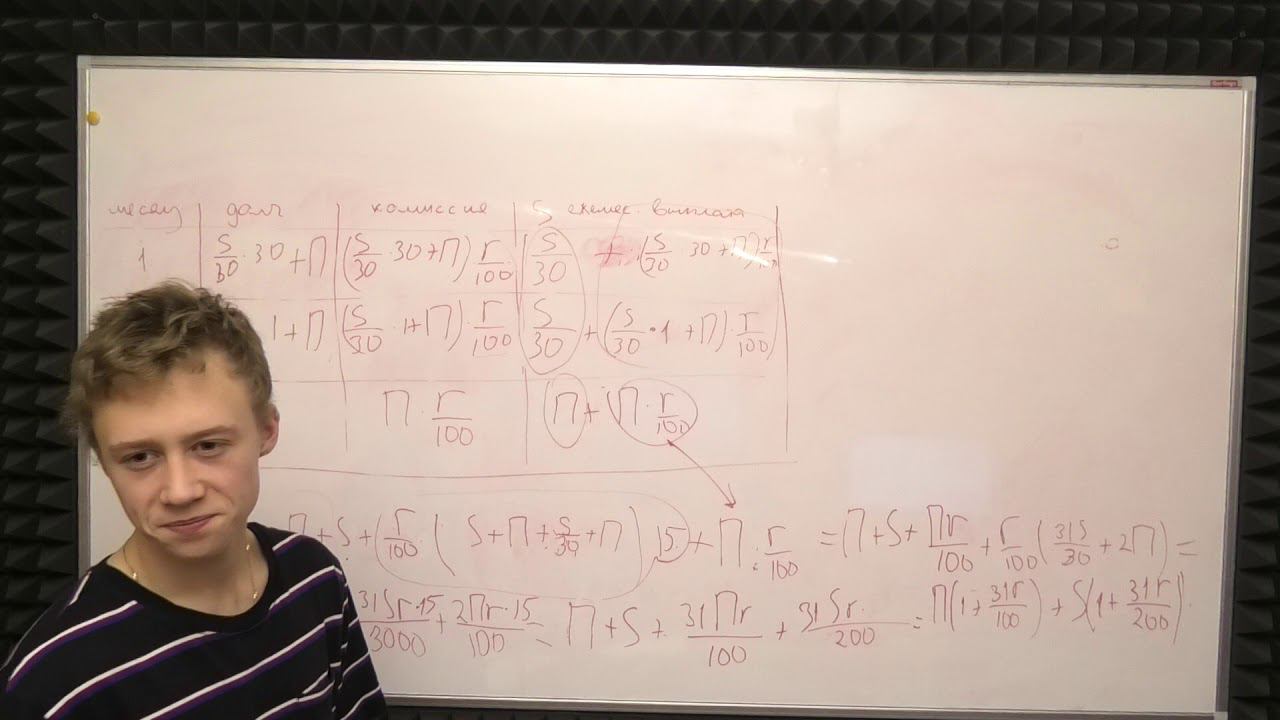 месяц долг комиссия ежемес. выплата
1 S/30 · 30 + П (S/30 · 30 + П) r/100 S/30 + (S/30 · 30 + П) r/100
1 + П (S/30 · 1 + П) · r/100 S/30 + (S/30 · 1 + П) · r/100
П · r/100 П + П · r/100
П + S + (r/100 ( S + П + S/30 + П ) 15) + П · r/100 = П + S + Пr/100 + r/100 (31S/30 + 2П) =
31Sr·15/3000 + 2Пr·15/100 = П + S + 31Пr/100 + 31Sr/200 = П(1 + 31r/100) + S(1 + 31r/200).